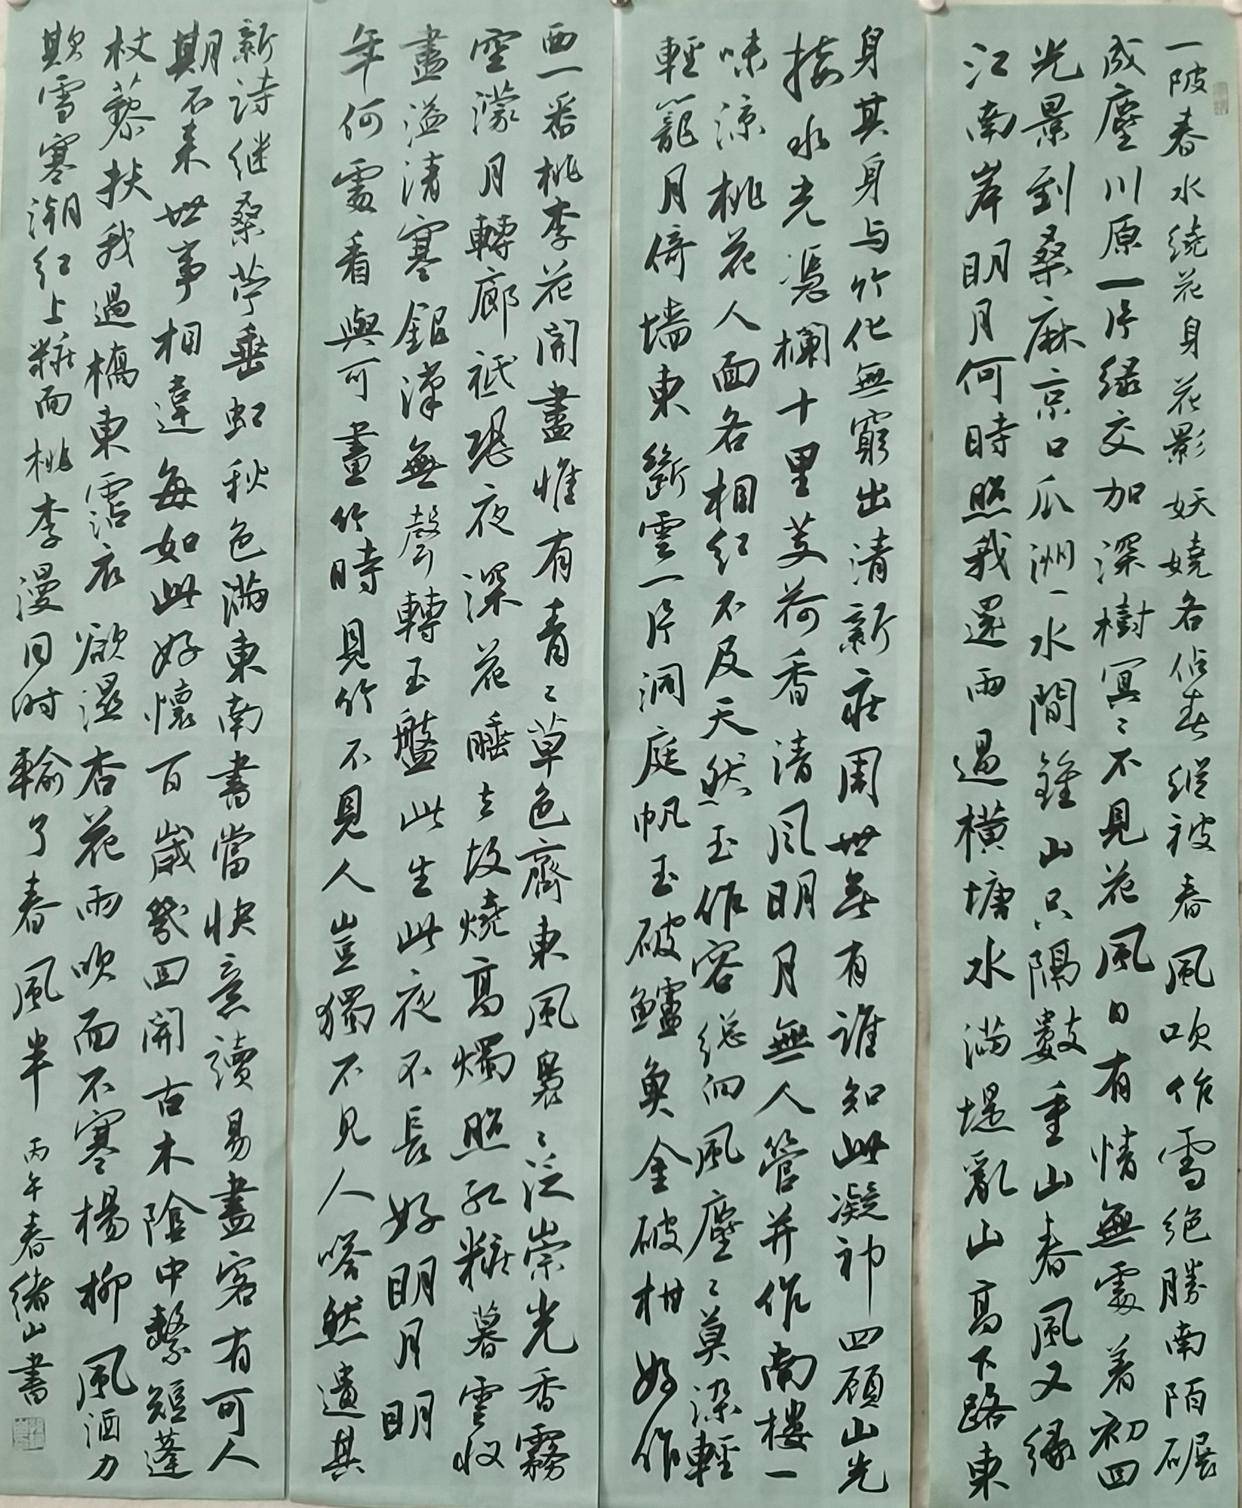 一陂春水繞花身花影妖嬈各佔春縱被春風吹作雪絕勝南陌碾
成塵川原一片綠交加深樹冥々不見花風日有情無處着初回
光景到桑麻京口瓜洲一水間鍾山只隔數重山春風又綠
江南岸明月何時照我還雨過橫塘水滿堤亂山高下路東
西一番桃李花開盡惟有青々草色齊東風裊々泛崇光香霧
空濛月轉廊祇恐夜深花睡去故燒高燭照紅糚暮雲收
盡溢清寒銀漢無聲轉玉盤此生此夜不長好明月明
年何處看與可畫竹時見竹不見人豈獨不見人嗒然遺其
身其身與竹化無窮出清新莊周世無有誰知此凝神四顧山光
接水光憑欄十里芰荷香清風明月無人管并作南樓一
味涼桃花人面各相紅不及天然玉作容總向風塵々莫染輕
輕籠月倚墻東斷雲一片洞庭帆玉破鱸魚金破柑好作
新詩继桑苧垂虹秋色滿東南書當快意讀易盡客有可人
期不来世事相違每如此好懷百歲幾回開古木陰中繫短蓬
杖藜扶我過橋東霑衣欲濕杏花雨吹面不寒楊柳風酒力
欺雪寒潮红上糚面桃李漫同时輸了春風半
丙午春緒山書